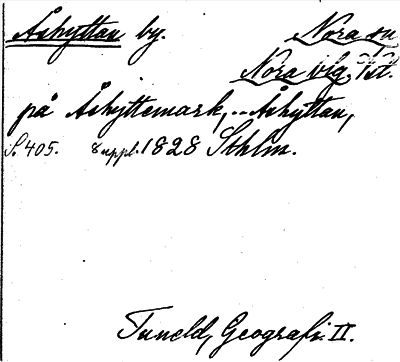 Åshyttan by. Nora sn
Nora blg, Vstl.
på Åshyttemark,--Åshyttan,
S. 405. 8 uppl. 1828 Sthlm.
Tuneld, Geografi II.